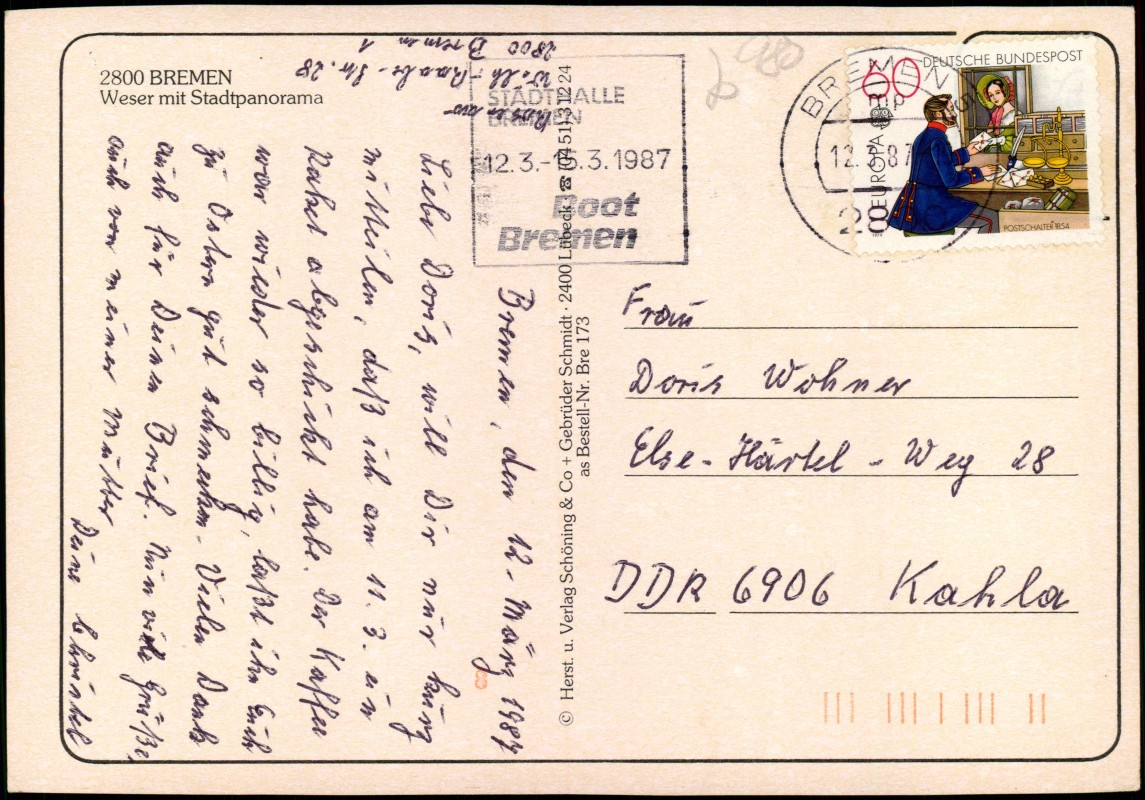 2800 BREMEN
Weser mit Stadtpanorama
2800 Bremen 1
Wilh.-Raabe-Str. 28
STADTHALLE
BREMEN
12.3.-15.3.1987
Boot
Bremen
BREMEN
12.3.87
28
60
DEUTSCHE BUNDESPOST
EUROPA
POSTSCHALTER 1854
1979
Bremen, den 12. März 1987
Liebe Doris, will Dir nur kurz
mitteilen, daß ich am 11. 3. ein
Paket abgeschickt habe. Der Kaffee
war wieder so billig, laßt ihn Euch
zu Ostern gut schmecken. Vielen Dank
auch für Deinen Brief. Nun viele Grüße,
auch von meiner Mutter
Deine Christel
© Herst. u. Verlag Schöning & Co + Gebrüder Schmidt · 2400 Lübeck ☎ (0451) 31224
as Bestell-Nr. Bre 173
Frau
Doris Wohner
Else-Härtel-Weg 28
DDR 6906 Kahla
8